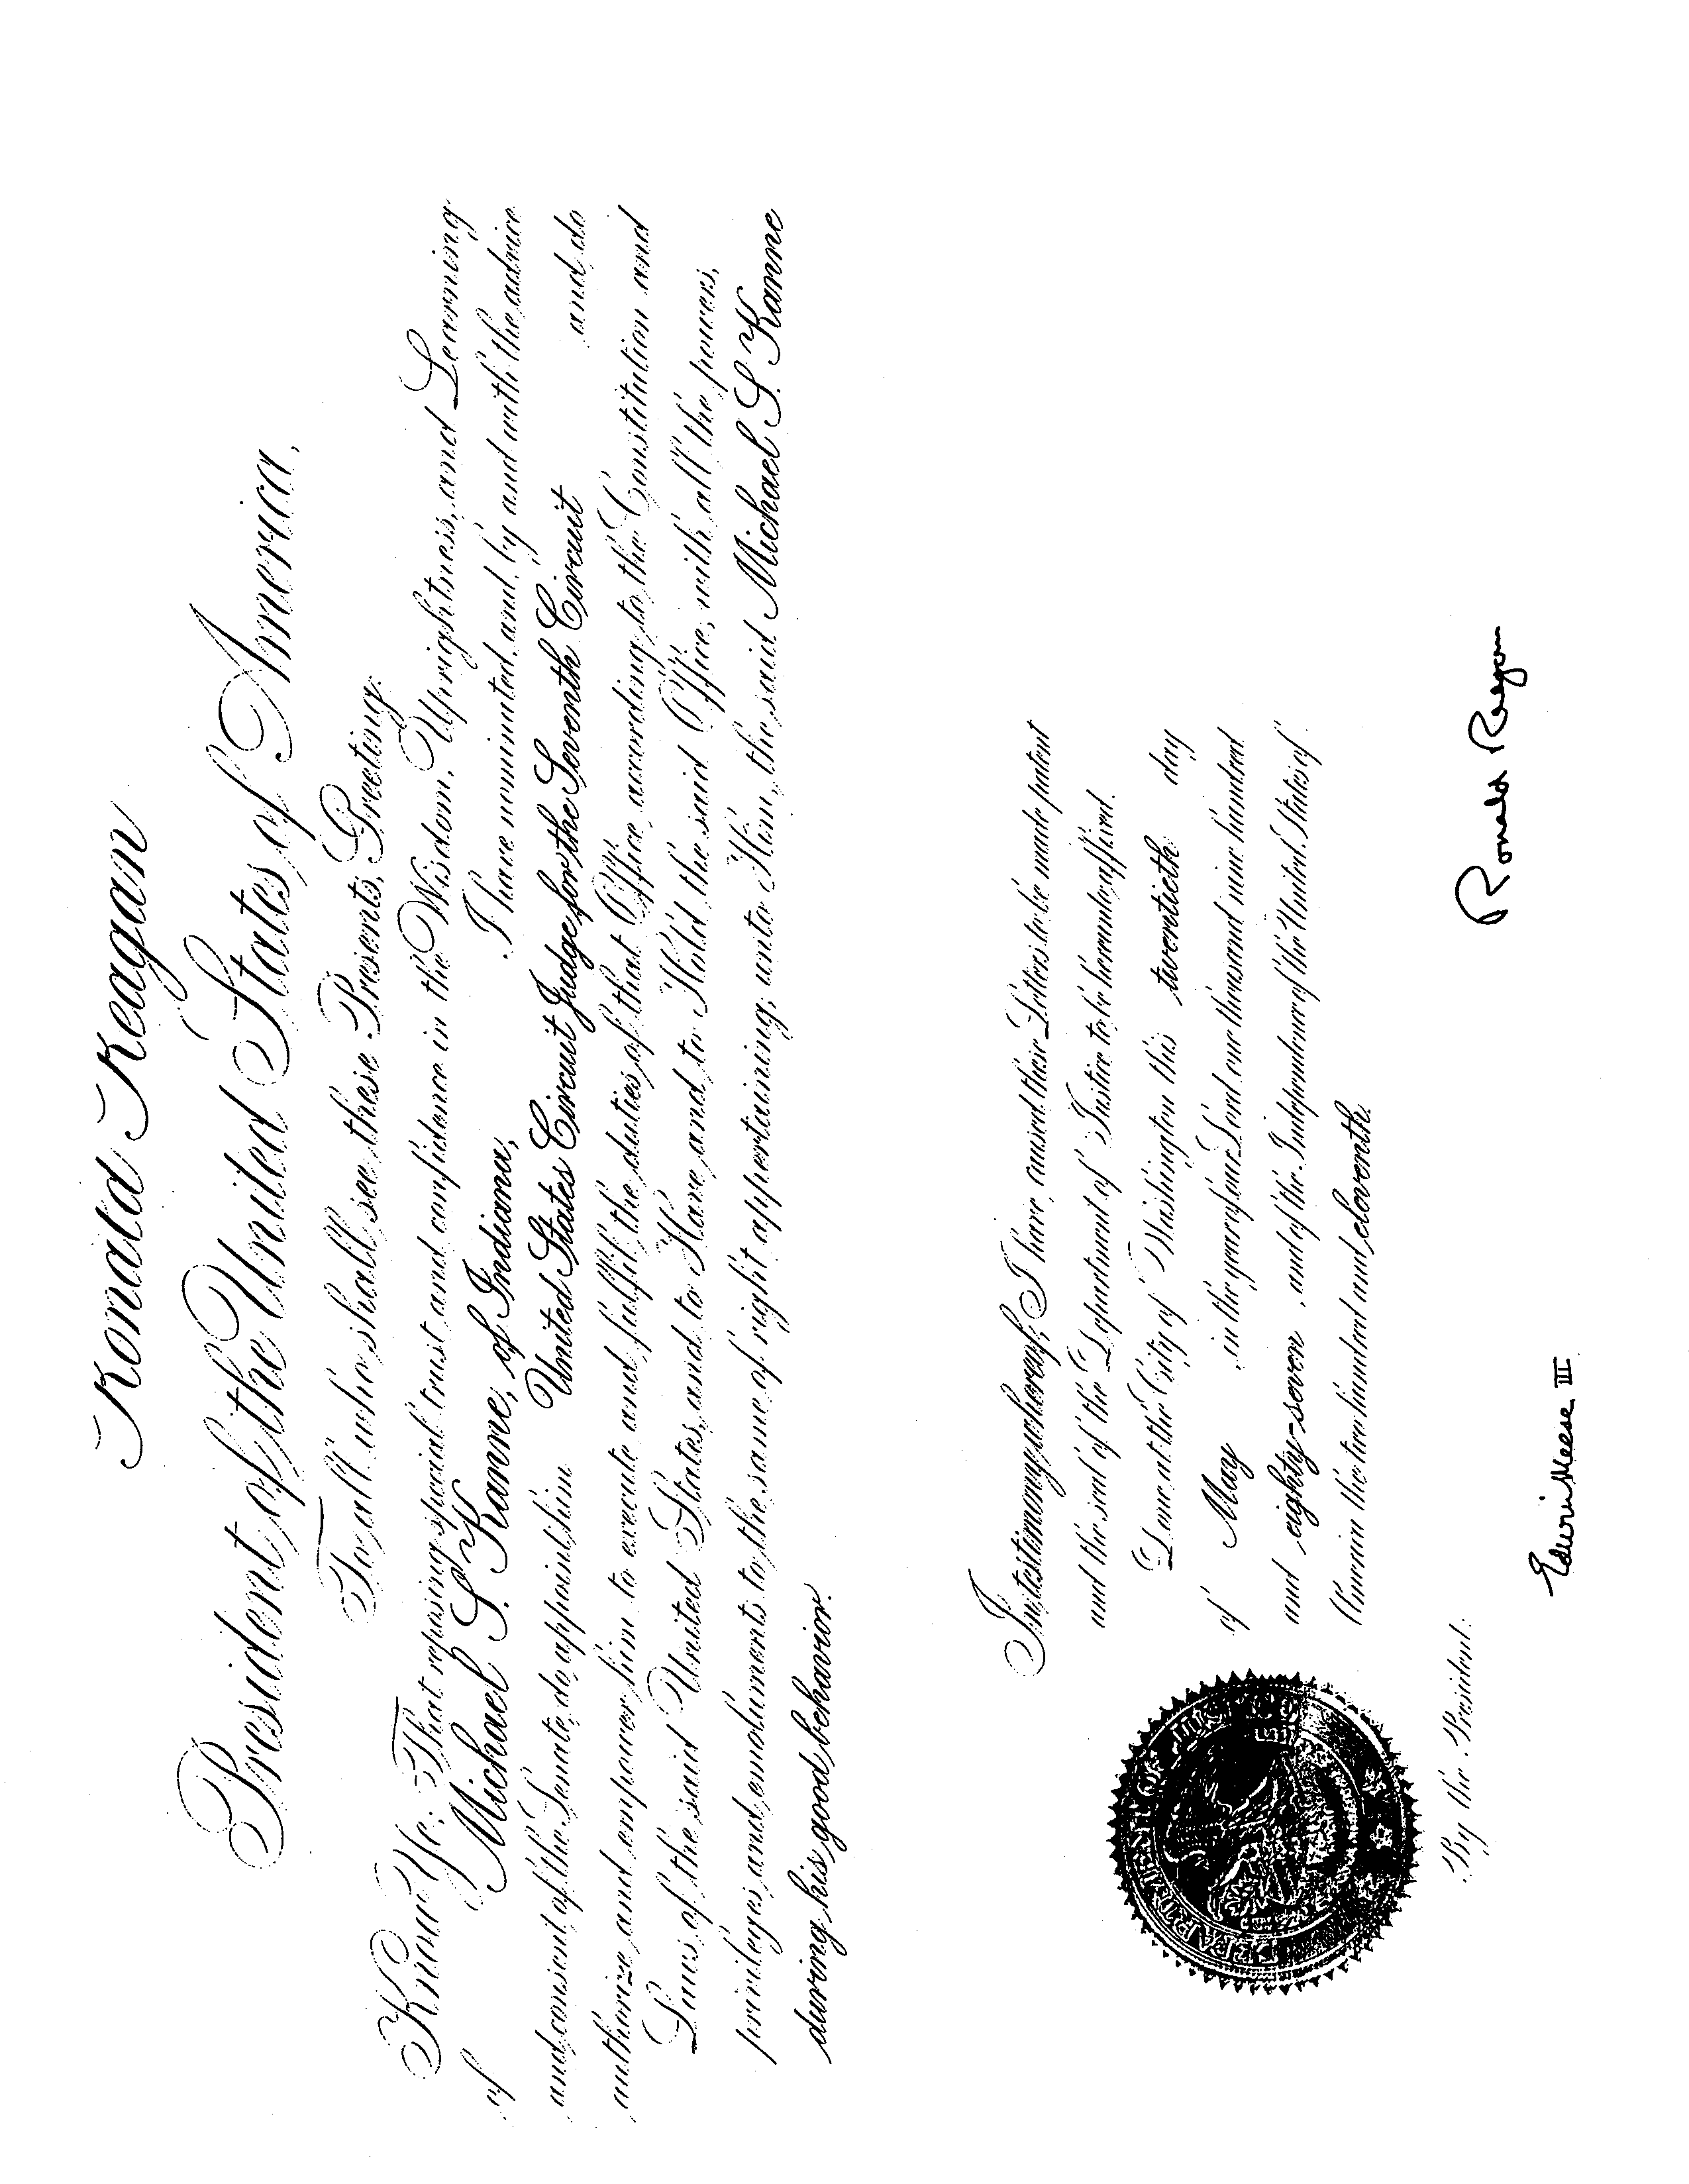 Ronald Reagan
President of the United States of America,
To all who shall see these Presents, Greeting:
Know Ye: That reposing special trust and confidence in the Wisdom, Uprightness, and Learning
of Michael S. Kanne, of Indiana, I have nominated, and, by and with the advice
and consent of the Senate, do appoint him United States Circuit Judge for the Seventh Circuit and do
authorize and empower him to execute and fulfil the duties of that Office according to the Constitution and
Laws of the said United States, and to Have and to Hold the said Office, with all the powers,
privileges and emoluments to the same of right appertaining, unto Him, the said Michael S. Kanne
during his good behavior.
In testimony whereof, I have caused these Letters to be made patent
and the seal of the Department of Justice to be hereunto affixed.
Done at the City of Washington this twentieth day
of May in the year of our Lord one thousand nine hundred
and eighty-seven, and of the Independence of the United States of
America the two hundred and eleventh.
DEPARTMENT OF JUSTICE
Ronald Reagan
By the President:
Edwin Meese III